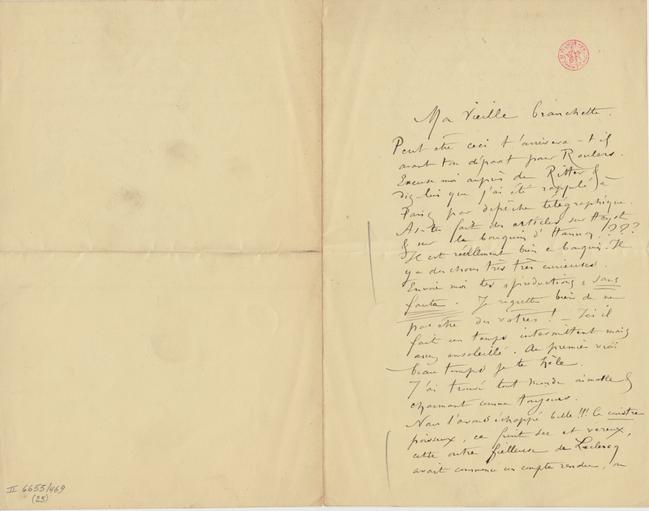 Ma vieille branchette.
Peut être ceci t'arrivera-t-il
avant ton départ pour Roulers.
Excuse moi auprès de Ritter &
dis-lui que j'ai été rappelé à
Paris par dépêche télégraphique.
As-tu fait des articles sur
& sur le bouquin d'Hannon ???
Il est réellement bien ce bouquin. Il
y a des choses très très curieuses.
Envoie moi tes productions sans
faute. Je regrette bien de ne
pas être des vôtres! - Ici il
fait un temps intermittent mais
assez ensoleillé. Au premier vrai
beau temps je te hèle.
J'ai trouvé tout monde aimable &
charmant comme toujours.
Nous l'avons échappé belle!!! Ce cuistre
poisseux, ce fruit sec et véreux,
cette outre fielleuse de Leclercq
avait commencé un compte rendu, ou
II 6655/469
(25)